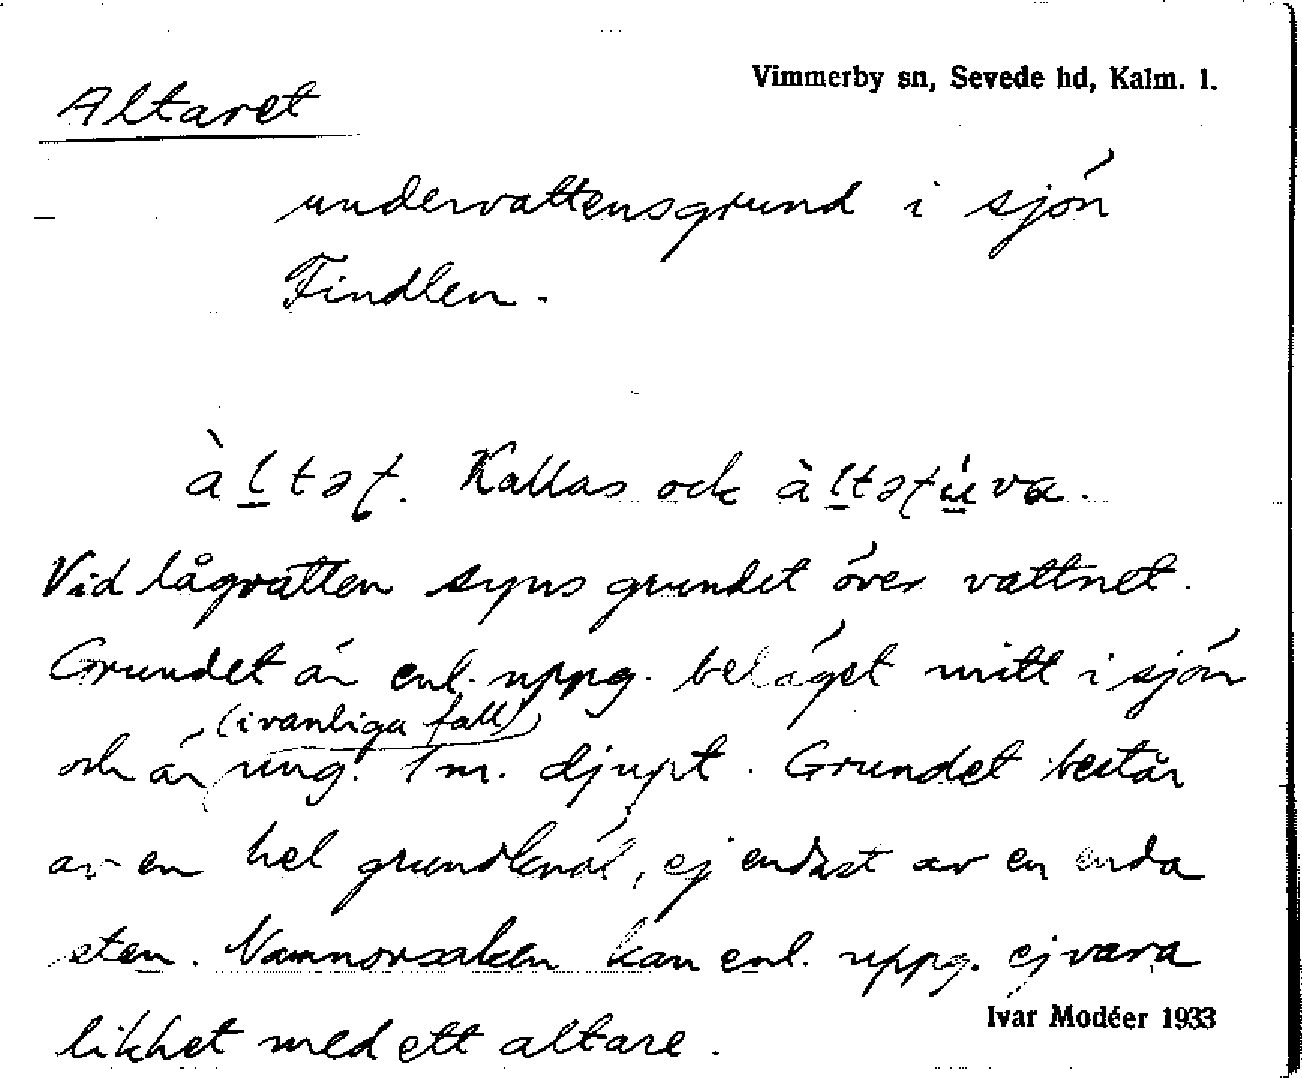 Vimmerby sn, Sevede hd, Kalm. l.
Altaret
undervattensgrund i sjön
Findlen.
àl̲tət. Kallas ock àl̲tətú̲va.
Vid lågvatten syns grundet över vattnet.
Grundet är enl. uppg. beläget mitt i sjön
(i vanliga fall)
och är ung. 1 m. djupt. Grundet består
av en hel grundknöl, ej endast av en enda
sten. Namnorsaken kan enl. uppg. ej vara
likhet med ett altare.
Ivar Modéer 1933